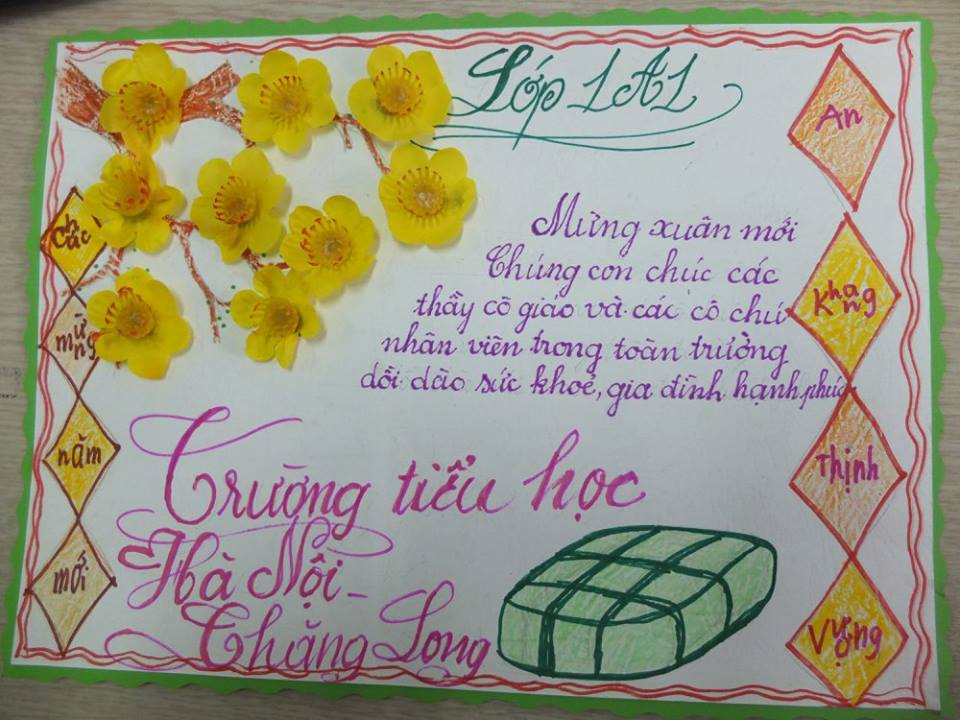 Lớp 1A1
An
Khang
Thịnh
Vượng
Chúc
mừng
năm
mới
Mừng xuân mới
Chúng con chúc các
thầy cô giáo và các cô chú
nhân viên trong toàn trường
dồi dào sức khoẻ, gia đình hạnh phúc
Trường tiểu học
Hà Nội -
Thăng Long